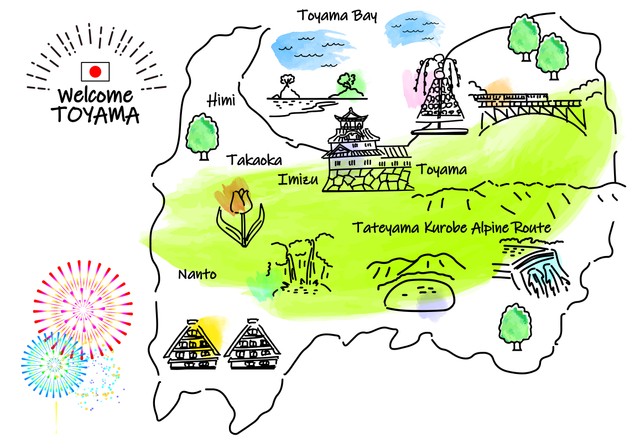 Toyama Bay
Welcome
TOYAMA
Himi
Takaoka
Imizu
Toyama
Tateyama Kurobe Alpine Route
Nanto